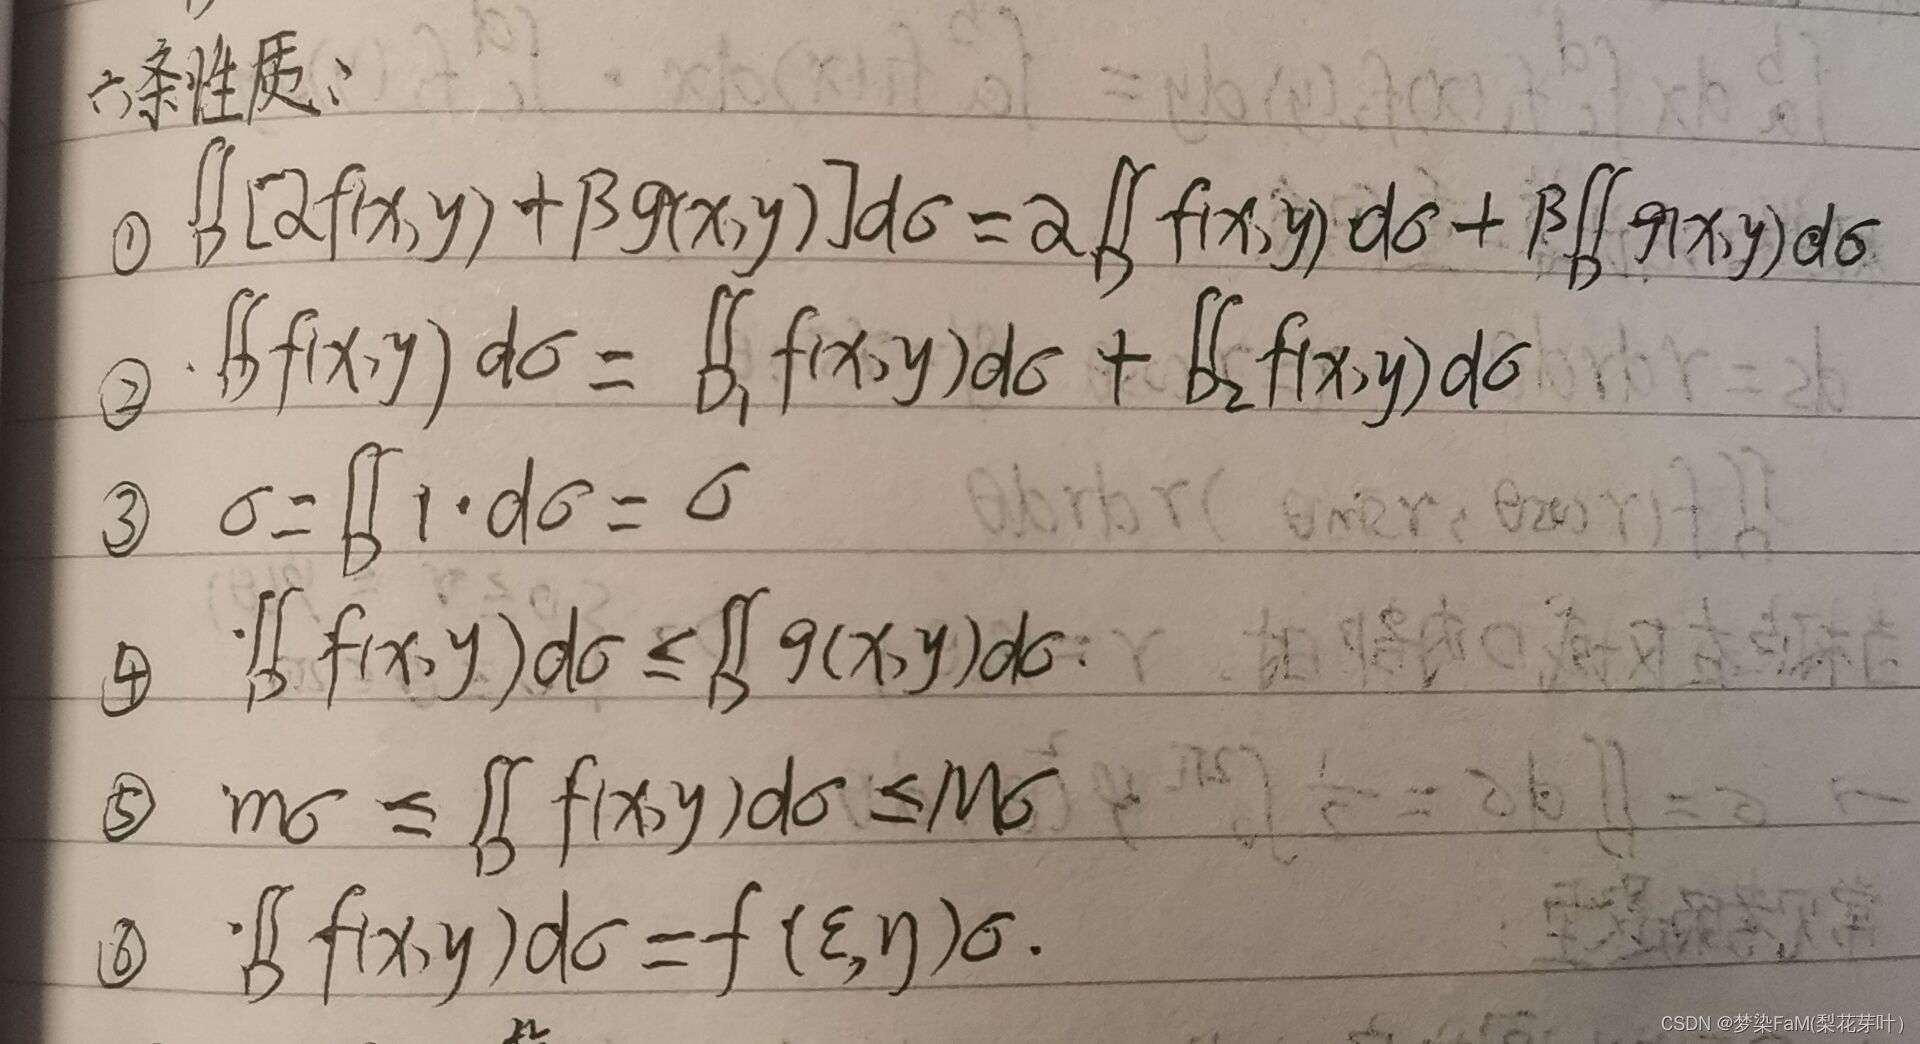 六条性质:
① ∬_D [2f(x,y)+βg(x,y)]dσ=2∬_D f(x,y)dσ+β∬_D g(x,y)dσ
② ∬_D f(x,y)dσ=∬_D₁ f(x,y)dσ+∬_D₂ f(x,y)dσ
③ σ=∬_D 1·dσ=σ
④ ∬_D f(x,y)dσ≤∬_D g(x,y)dσ.
⑤ mσ≤∬_D f(x,y)dσ≤Mσ
⑥ ∬_D f(x,y)dσ=f(ε,η)σ.
CSDN @梦染FaM(梨花芽叶)